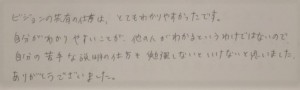 ビジョンの共有の仕方は、とてもわかりやすかったです。
自分がわかりやすいことが、他の人がわかるというわけではないので
自分の苦手な説明の仕方を勉強しないといけないと思いました。
ありがとうございました。